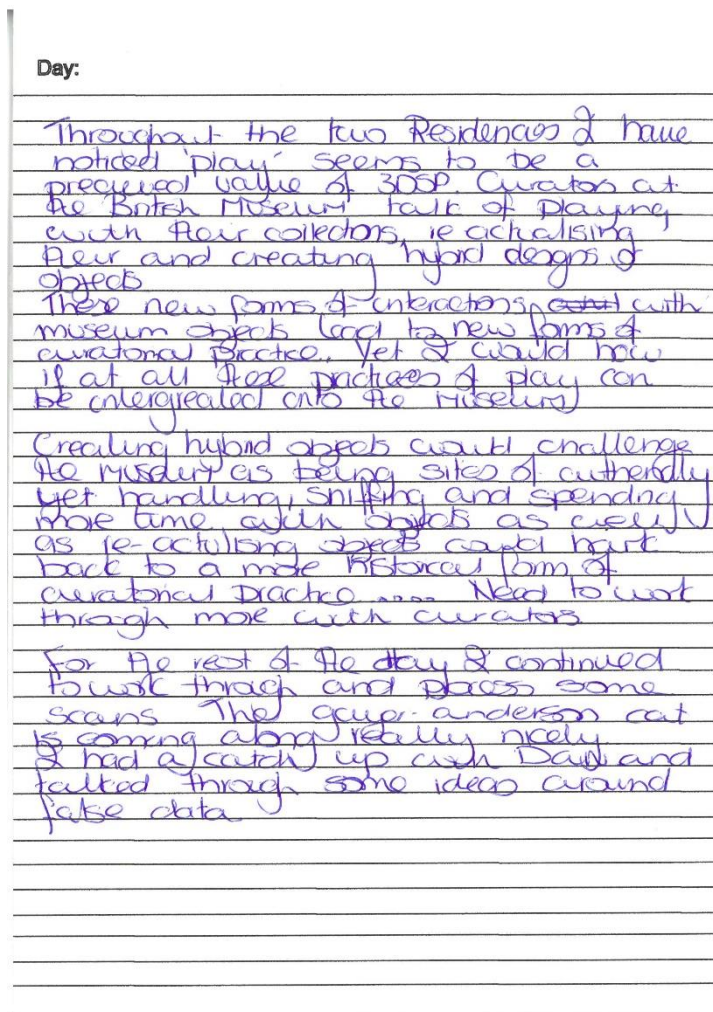 Day:
Throughout the two Residencies I have
noticed 'play' seems to be a
value of 3DSP. Curators at
the British Museum talk of playing
with their collections, ie actualising
their and creating hybrid designs of
objects
These new forms of interactions with
museum objects lead to new forms of
curatorial practice. Yet I would how
if at all these practices of play can
be intergreated into the Museum
Creating hybrid objects would challenge
the museum as being sites of authenticity
yet handling, sniffing and spending
more time with objects as well
as re-actulising objects could hart
back to a more historical form of
curatorial practice .... Need to work
through more with curators
For the rest of the day I continued
to work through and process some
scans The gayer-anderson cat
is coming along really nicely
I had a catch up with and
talked through some ideas around
false data